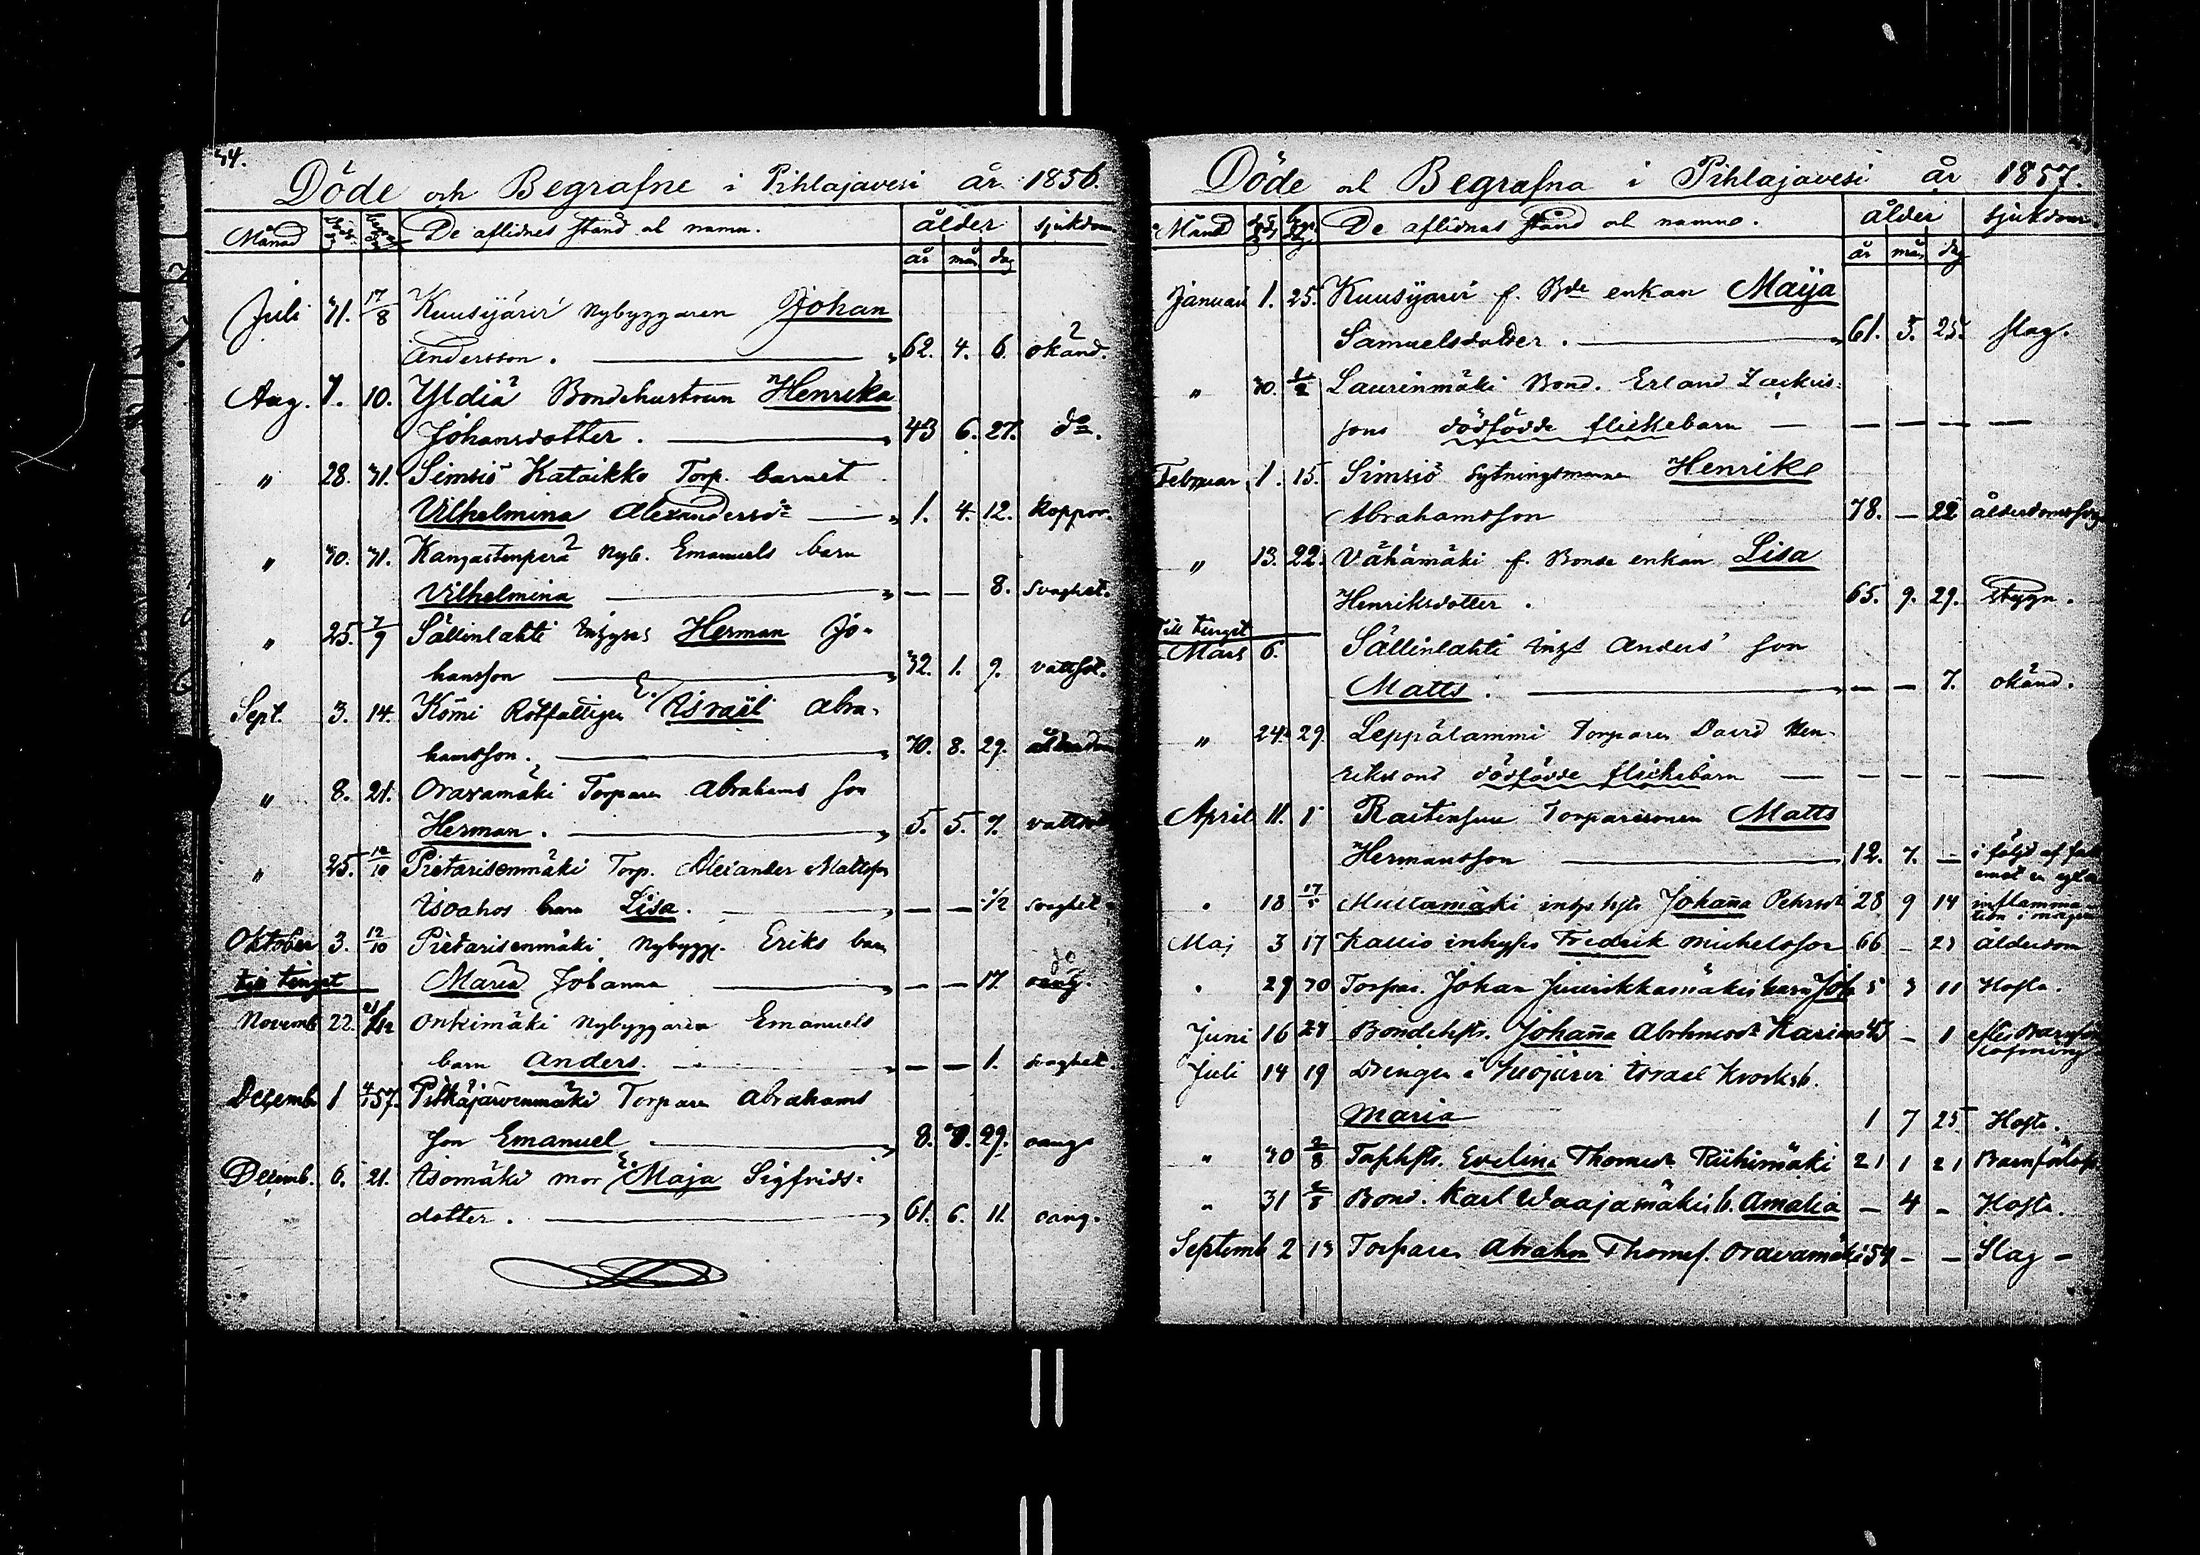 34.
Döde och Begrafne i Pihlajavesi år 1856.
Månad De aflidnes stånd och namn. ålder sjukdom
år mån dag
Juli 31. 17/8 Kuusijärvi nybyggaren Johan
Andersson. 62. 4. 6. okänd.
Aug. 7. 10. Yldiä Bondehustrun Henrika
Johansdotter. 43 6. 27. do.
" 28. 31. Simsiö Kataikko Torp. barnet
Vilhelmina Alexandersdr 1. 4. 12. koppor.
" 30. 31. Kangastenperä Nyb. Emanuels barn
Vilhelmina — — 8. svaghet.
" 25. 7/9 Sällinlahti Inhyses Herman Jo-
hansson 32. 1. 9. vattsot.
Sept. 3. 14. Kömi Rotfattigen E. Israël Abra-
hamsson. 70. 8. 29. ålderdom
" 8. 21. Oravamäki Torparen Abrahams son
Herman. 5. 5. 7. vattsot
" 25. 12/10 Pietarisenmäki Torp. Alexander Mattsson
Isoahos barn Lisa. — — 1/2 svaghet.
Oktober 3. 12/10 Pietarisenmäki Nybygg. Eriks barn
till tinget Maria Johanna — — 17. oang.
Novemb 22. 21/12 Onkimäki Nybyggaren Emanuels
barn Anders. — — 1. svaghet.
Decemb 1 4/1 57. Pitkäjärvenmäki Torparen Abrahams
son Emanuel 8. 8. 29. oang.
Decemb. 6. 21. Asomäki mor E. Maja Sigfrids-
dotter. 61. 6. 11. oang.
Döde och Begrafna i Pihlajavesi år 1857.
Månad De aflidnas stånd och namn. ålder sjukdom
år mån dag
Januari 1. 25. Kuusijärvi f. Bde enkan Maija
Samuelsdotter. 61. 5. 25. slag.
" 30. 1/2 Laurinmäki Bond. Erland Zackris-
sons dödfödde flickebarn — — — —
Februar 1. 15. Simsiö Sytningsmannen Henrik
Abrahamsson 78. — 22 ålderdomssvag
" 13. 22. Vähämäki f. Bonde enkan Lisa
Henriksdotter. 65. 9. 29. stygn.
Till tinget
Mars 6. Sällinlahti Inhs Anders' son
Matts. — — 7. okänd.
" 24. 29. Leppälammi Torparen David Hen-
rikssons dödfödde flickebarn — — — —
April 11. Raiteinsuu Torparesonen Matts
Hermansson 12. 7. — i följd af fall
emot en
" 18 17/5 Multamäki inhs hstr Johanna Pehrsdr 28 9 14 inflamma-
tion i magen
Maj 3 17 Kallio inhyses Fredrik Michelsson 66 – 23 ålderdom
" 29 30 Torpar. Johan Juurikkamäkis barn Joh 5 3 11 Hosta.
Juni 16 24 Bondehstr. Johanna Abrahmsdr – 1 efter Barnsörj
Juli 14 19 Drengen i Kuojärvi Israel
Maria 1 7 25 Hosta.
" 30 2/8 Torphstr. Evelina Thomasdr Riihimäki 21 1 21 Barnförloss
" 31 2/8 Bond. Karl Waajamäkis b. Amalia – 4 – Hosta.
Septemb 2 13 Torparen Abrahm Thomes. Oravamäki 54 – – Slag –